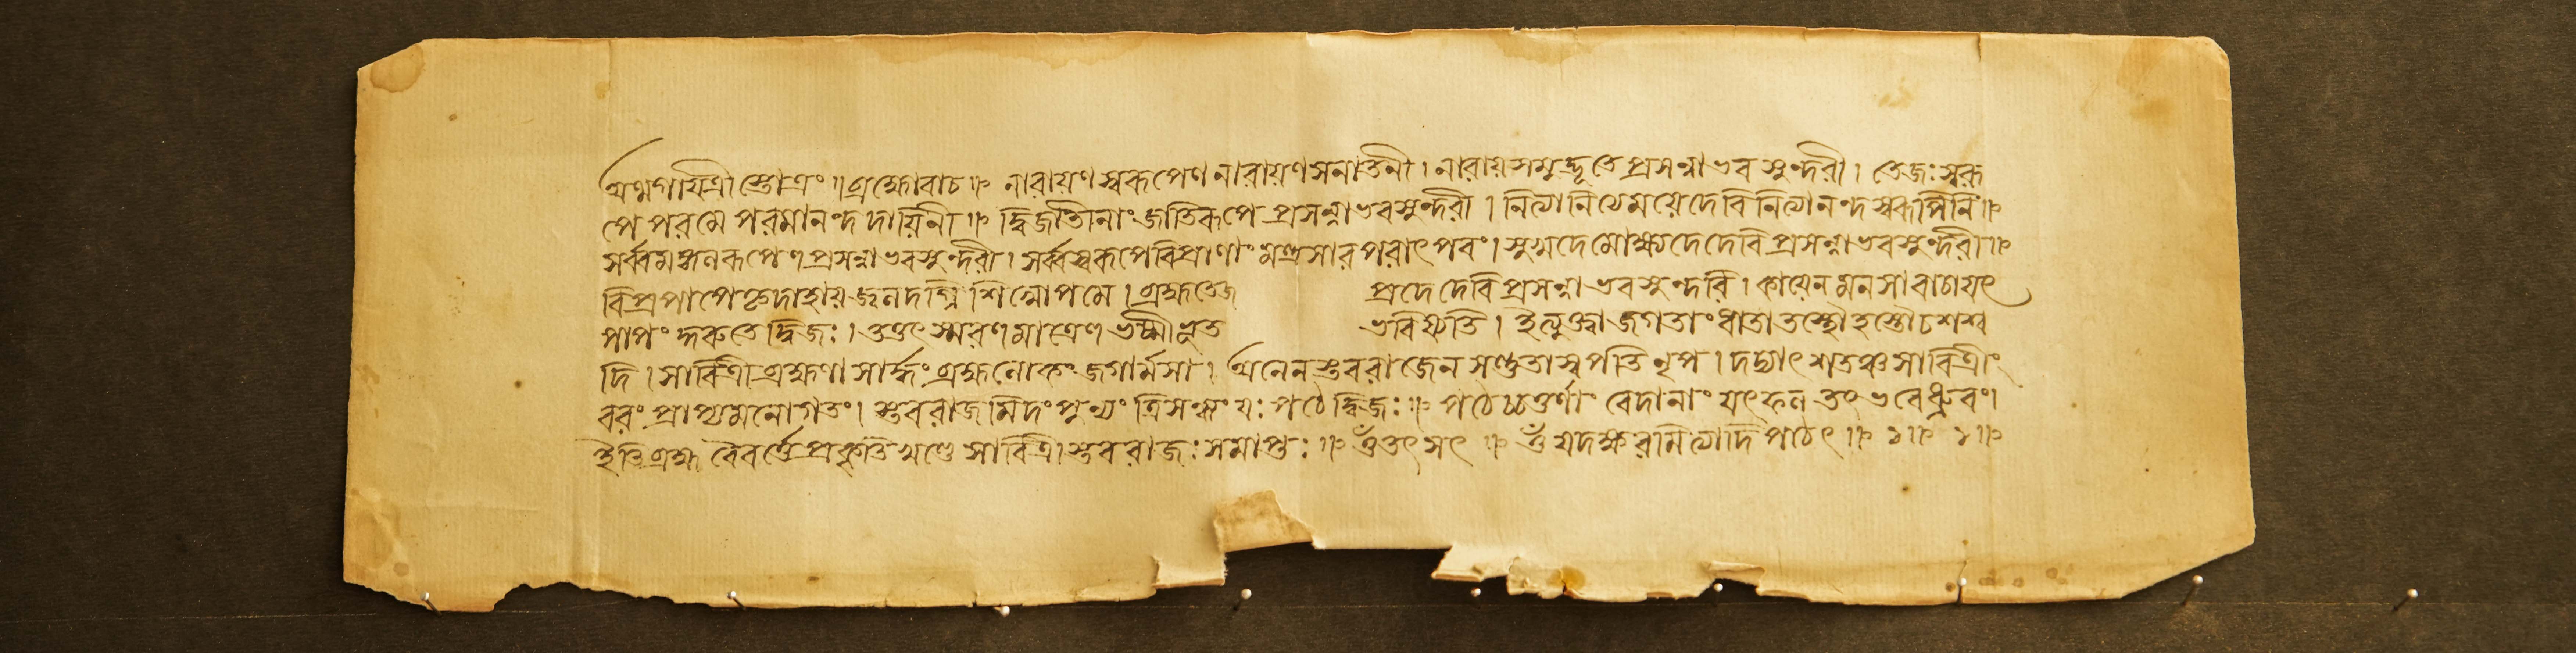 অথগায়িত্রীস্তোত্রং ॥ ব্রহ্মোবাচ ॥ নারায়ণস্বরূপেণ নারায়ণসনাতনী । নারায়সমুদ্ভূতেপ্রসন্নাভবসুন্দরী । তেজঃস্বরূ
পে পরমে পরমানন্দদায়িনী ॥ দ্বিজাতীনাংজাতিরূপে প্রসন্নাভবসুন্দরী । নিত্যানিত্যেময়েদেবিনিত্যানন্দস্বরূপিনি ॥
সর্ব্বমঙ্গলরূপেণপ্রসন্নাভবসুন্দরী । সর্ব্বস্বরূপেবিপ্রাণাং মন্ত্রসারপরাৎপরং । সুখদেমোক্ষ্যদেদেবিপ্রসন্নাভবসুন্দরী ॥
বিপ্রপাপেধ্মদাহায় শিখোপমে । ব্রহ্মতেজ প্রদেদেবিপ্রসন্নাভবসুন্দরি । কায়েনমনসাবাচাযৎ
পাপংকরুতেদ্বিজঃ । ততৎস্মরণমাত্রেণভষ্মীভূত ভবিষ্যতি । ইত্যুক্ত্বাজগতাংধাতাতস্থৌ শশ
দি । সাবিত্রীব্রহ্মণাসার্দ্ধংব্রহ্মলোকংজগার্মসা । অনেনস্তবরাজেনসংস্তুতাস্বপতিনৃপ । দদ্যাৎ সাবিত্রীং
বরং প্রাপ্যমনোগতং । স্তবরাজমিদংপুণ্যং ত্রিসন্ধ্যংযঃপঠেদ্বিজঃ ॥ পঠেচ্চতুর্ণাং বেদানাং যৎফলতৎভবেধ্রুবং ।
ইতিব্রহ্মবৈবর্ত্তেপ্রকৃতিখণ্ডেসাবিত্রীস্তবরাজঃসমাপ্তঃ ॥ ওঁতৎসৎ ॥ ওঁযদক্ষরমিত্যাদিপঠেৎ ॥ ১ ॥ ১ ॥